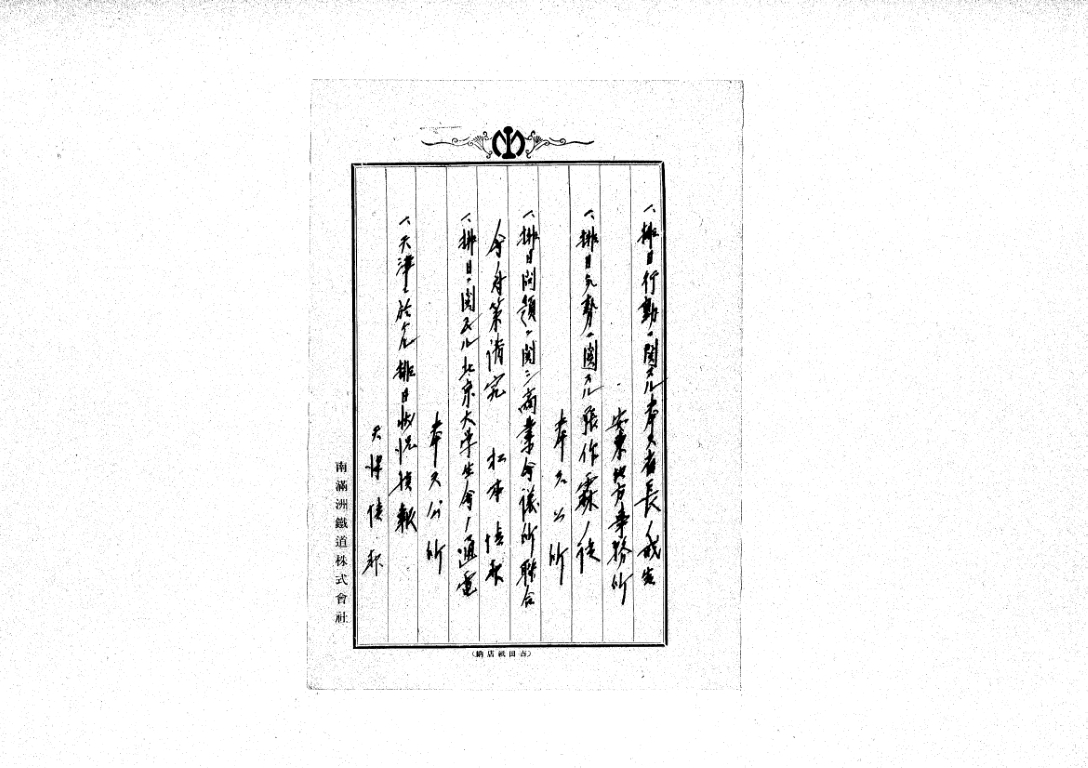 一、排日行動ニ関スル奉天省長ノ戒告
安東地方事務所
一、排日気勢ニ関スル張作霖ノ
奉天公所
一、排日問題ニ関シ商業会議所聯合
会ノ対策講究 松本情報
一、排日ニ関スル北京大学生会ノ通電
奉天公所
一、天津ニ於ケル排日状況情報
天津情報
南滿洲鐵道株式會社